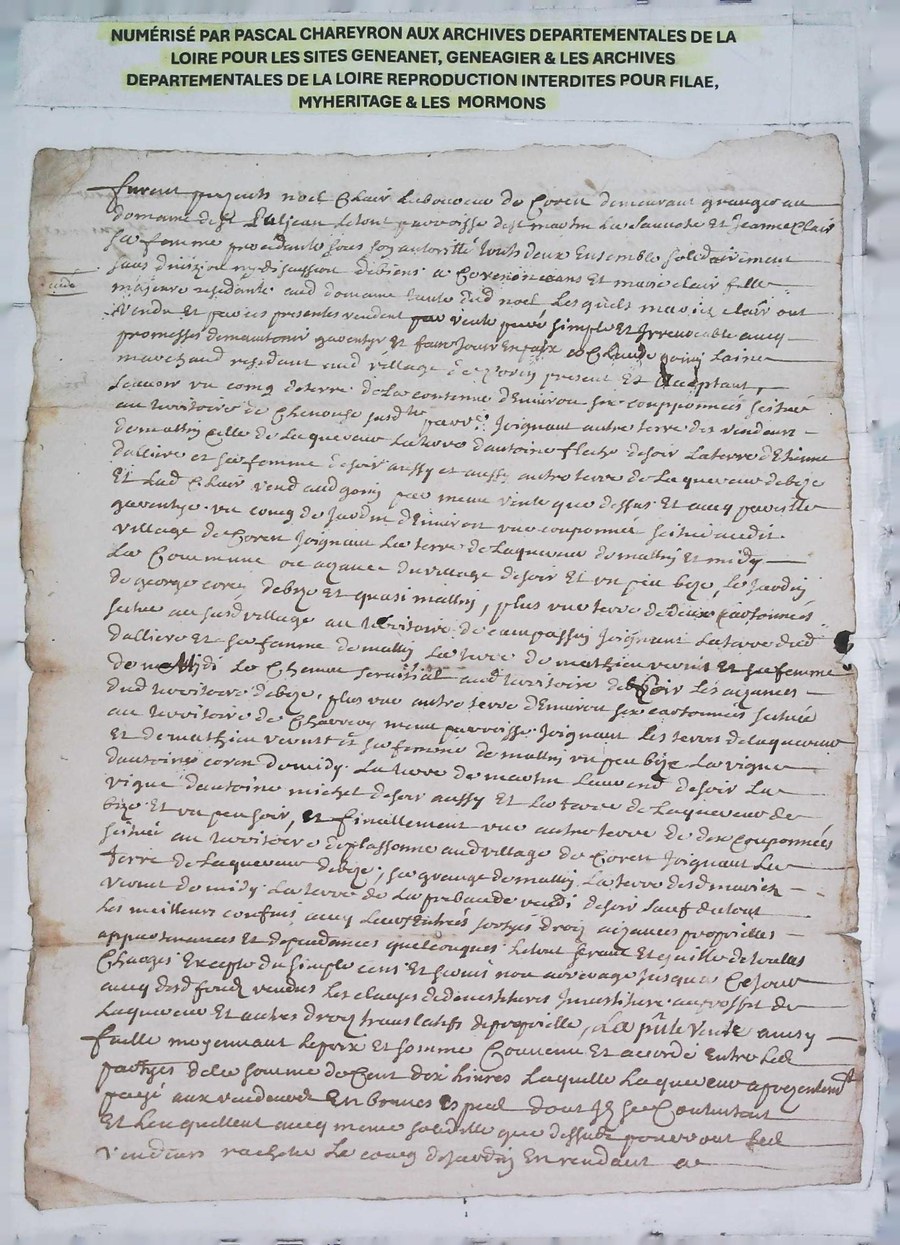 NUMÉRISÉ PAR PASCAL CHAREYRON AUX ARCHIVES DEPARTEMENTALES DE LA
LOIRE POUR LES SITES GENEANET, GENEAGIER & LES ARCHIVES
DEPARTEMENTALES DE LA LOIRE REPRODUCTION INTERDITES POUR FILAE,
MYHERITAGE & LES MORMONS
furent presents noel Clair laboureur de Coren demeurant granger au
domaine de letout parroisse de st martin La sauveté Et Jeanne Clair
sa femme procedante sous son autorité touts deux Ensemble solidairement
sans division ny discussion debiens a Et marie clair fille
majeure residante aud domaine dud noel Lesquels clair ont
Vendu Et par ces presentes vendent par vente pure simple Et Irrevocable avec
promesses demaintenir garentyr et faire Jouir En paix a Claude
marchand residant aud village de Coren present Et Acceptant
scavoir un coing deterre de La contenue d'Environ six coupponnées scitué
au territoire de susdte parr: Joignant autre terre des vendeurs
dematin celle de Laquereur La terre d'antoine desoir La terre d'Etienne
dallière et sa femme desoir aussy et aussy autre terre de Laquereur debize
Et Lad Clair vend aud par meme vente que dessus Et avec pareille
garentye un coing de Jardin d'Environ une couponnée scitué audit
village de Coren Joignant La terre de Laquereur de matin Et midy
La Commune ou aizance du village desoir Et un peu bize, le Jardin
de george coren debize Et quasi matin, plus une terre de deux cartonnées
scitué au susd village au territoire de Joignant La terre dud
dalliere Et sa femme de matin La terre de mathieu Et sa femme
de Midi Le Chemin aud territoire de soir Les aizances
dud territoire debize, plus une autre terre d'Environ six cartonnées scituée
au territoire de meme parroisse Joignant Les terres delaquereur
Et de mathieu et sa femme de matin un peu bize La vigne
d'antoine coren de midy La terre de martin desoir La
vigne d'antoine michel desoir aussy Et La terre de Laquereur de
bize Et un peu soir, et finallement une autre terre de dix Couponnées
scitué au territoire deplassonne aud village de Coren Joignant La
terre de Laquereur debize, sa grange de matin, La terre
de midy La terre de La prebande desoir sauf du tout
les meilleurs confins avec Leurs Entrées sortyes droits aizances proprietes
appartenances Et dependances quelconques letout franc Et quitte de toutes
Charges Excepté du simple cens Et servis non arrerage Jusqua Ce Jour
avec desd fonds vendus Les clauses dedevestitures Investiture au proffit de
Laquereur Et autres droits translatifs de proprieté, La pnte Vente ainsy
faitte moyennant Leprix Et somme Convenu Et accordé Entre Les
partyes dela somme de Cent dix Livres Laquelle Laquereur a presentemt
payé aux vendeurs En bonnes Especes dont Ils se Contentent
Et Len quittent avec meme solidité que dessus pourront Les
Vendeurs rachete Le coing de Jardin En rendant a